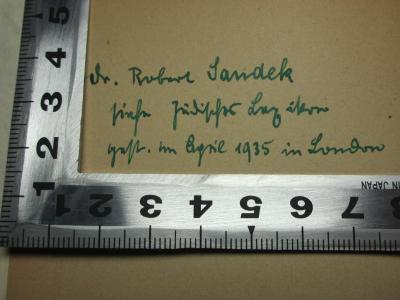 Dr. Robert Saudek
siehe Jüdisches Lexikon
gest. im April 1935 in London
5 4 3 2 1
1 2 1 2 3 4 5 6 7 8
IN JAPAN